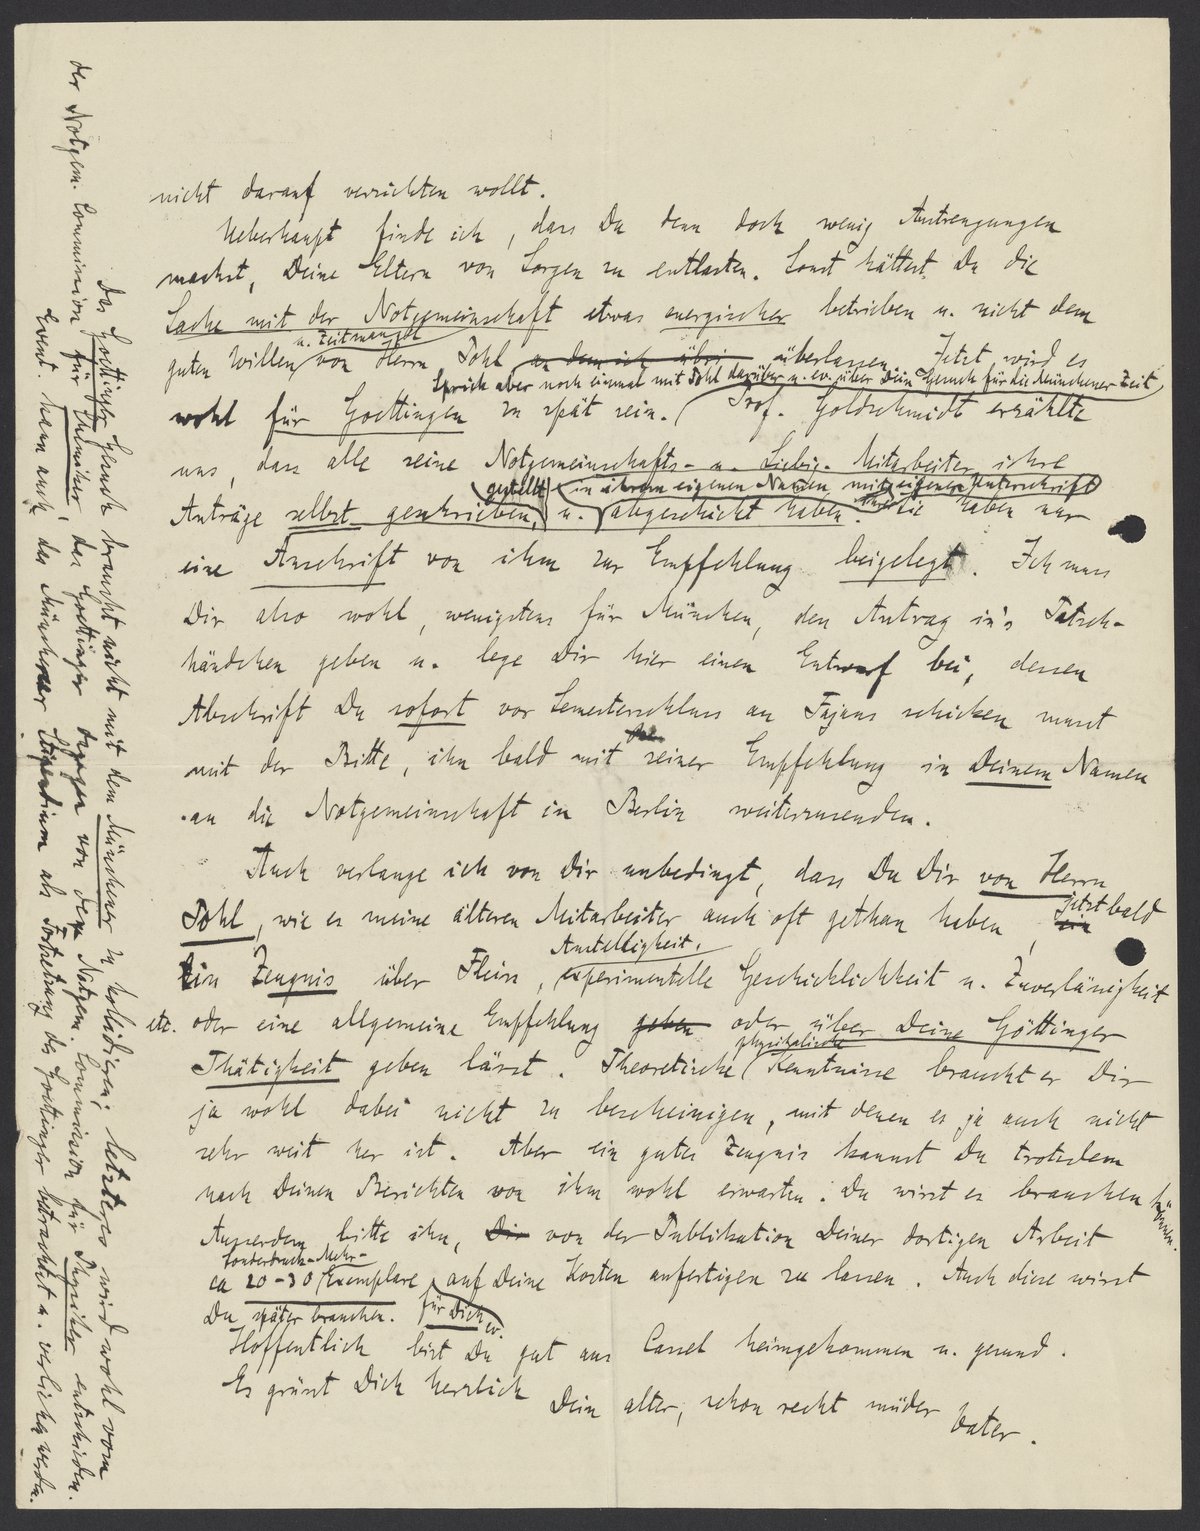 nicht darauf verzichten wollt.
Ueberhaupt finde ich, dass Du denn doch wenig Anstrengungen
machst, Deine Eltern von Sorgen zu entlasten. Sonst hättest Du die
Sache mit der Notgemeinschaft etwas energischer betrieben u. nicht dem
u. Zeitmangel
guten Willen von Herrn Pohl an dem ich übri überlassen. Jetzt wird es
Sprich aber noch einmal mit Pohl darüber u. ev. über Dein Gesuch für die Münchener Zeit
wohl für Goettingen zu spät sein. Prof. Goldschmidt erzählte
uns, dass alle seine Notgemeinschafts- u. Liebig- Mitarbeiter ihre
gestellt in ihrem eigenen Namen mit eigener Unterschrift
Anträge selbst geschrieben, u. abgeschickt haben. Sie haben nur
eine Anschrift von ihm zur Empfehlung beigelegt. Ich muss
Dir also wohl, wenigstens für München, den Antrag in's Patsch-
händchen geben u. lege Dir hier einen Entwurf bei, dessen
Abschrift Du sofort vor Semesterschluss an Fajans schicken musst
mit der Bitte, ihn bald mit seiner Empfehlung in Deinem Namen
an die Notgemeinschaft in Berlin weiterzusenden.
Auch verlange ich von Dir unbedingt, dass Du Dir von Herrn
Pohl, wie es meine älteren Mitarbeiter auch oft gethan haben, ein jetzt bald
Anstelligkeit,
ein Zeugnis über Fleiss, experimentelle Geschicklichkeit u. Zuverlässigkeit
etc. oder eine allgemeine Empfehlung geben oder über Deine Göttinger
physikalische
Thätigkeit geben lässt. Theoretische Kenntnisse braucht er Dir
ja wohl dabei nicht zu bescheinigen, mit denen es ja auch nicht
sehr weit her ist. Aber ein gutes Zeugnis kannst Du trotzdem
nach Deinen Berichten von ihm wohl erwarten. Du wirst es brauchen können.
Ausserdem bitte ihn, Dir von der Publikation Deiner dortigen Arbeit
Sonderdruck-Mehr-
ca 20-30 Exemplare auf Deine Kosten anfertigen zu lassen. Auch diese wirst
Du später brauchen. für Dich ev.
Hoffentlich bist Du gut aus Cassel heimgekommen u. gesund.
Es grüsst Dich herzlich
Dein alter, schon recht müder Vater.
Das Göttinger Gesuch braucht nicht mit dem Münchener zu kollidieren; letzteres wird wohl vom
der Notgem. Commission für Chemiker, das Goettinger dagegen von dem Notgem. Commission für Physiker entschieden.
Event. kann auch das Münchener Stipendium als Fortsetzung des Goettinger betrachtet u. verliehen werden.